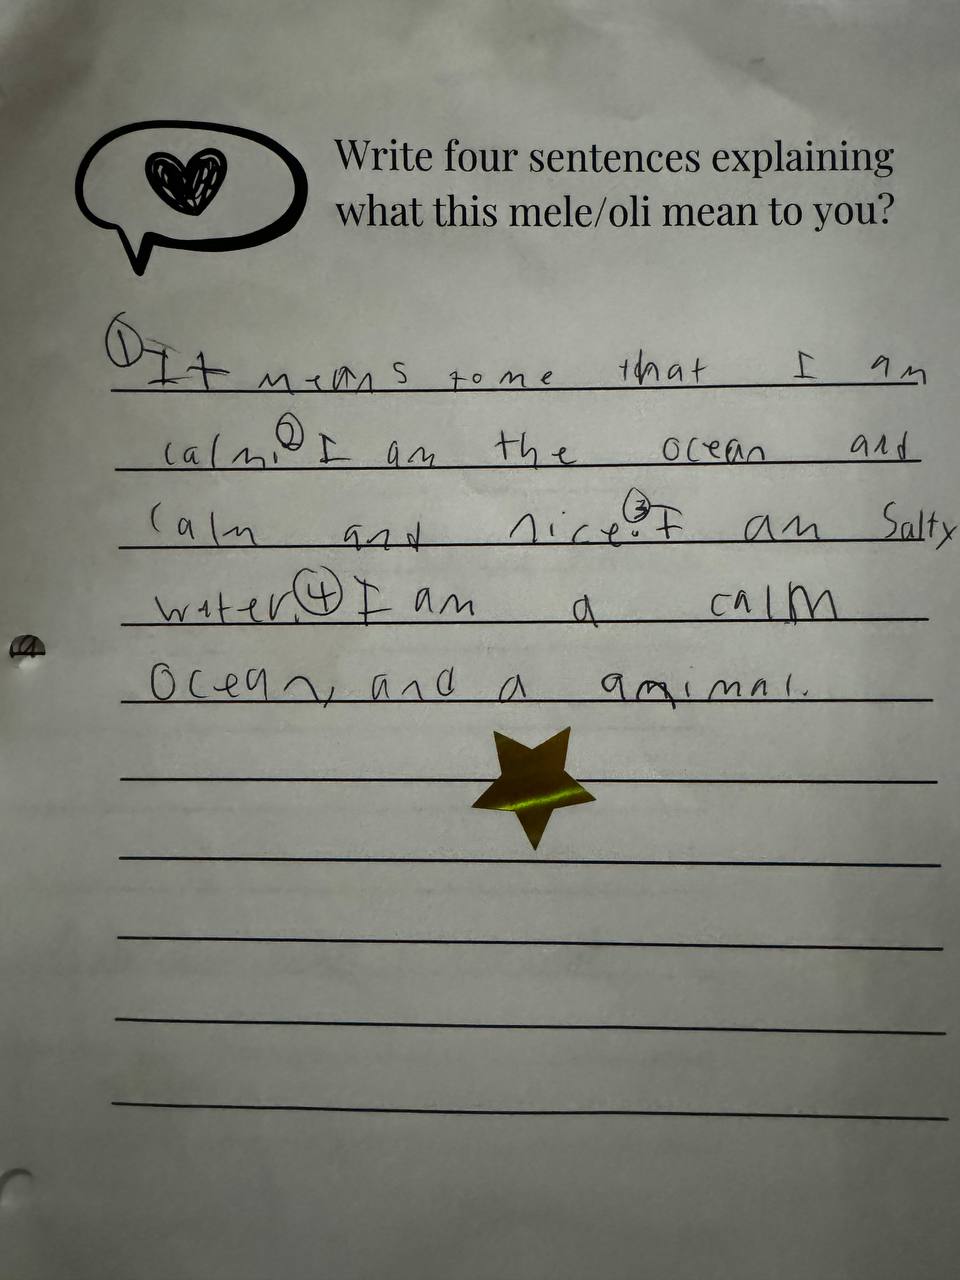 Write four sentences explaining
what this mele/oli mean to you?
① It means to me that I am
calm. ② I am the ocean and
calm and nice. ③ I am Salty
water. ④ I am a calm
Ocean, and a animal.